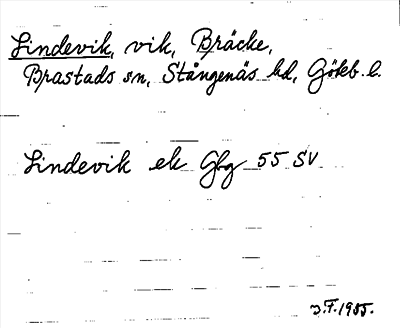 Lindevik, vik, Bräcke,
Brastads sn, Stångenäs hd, Götеb. l.
Lindevik ek Gbg 55 SV
J.F. 1955.